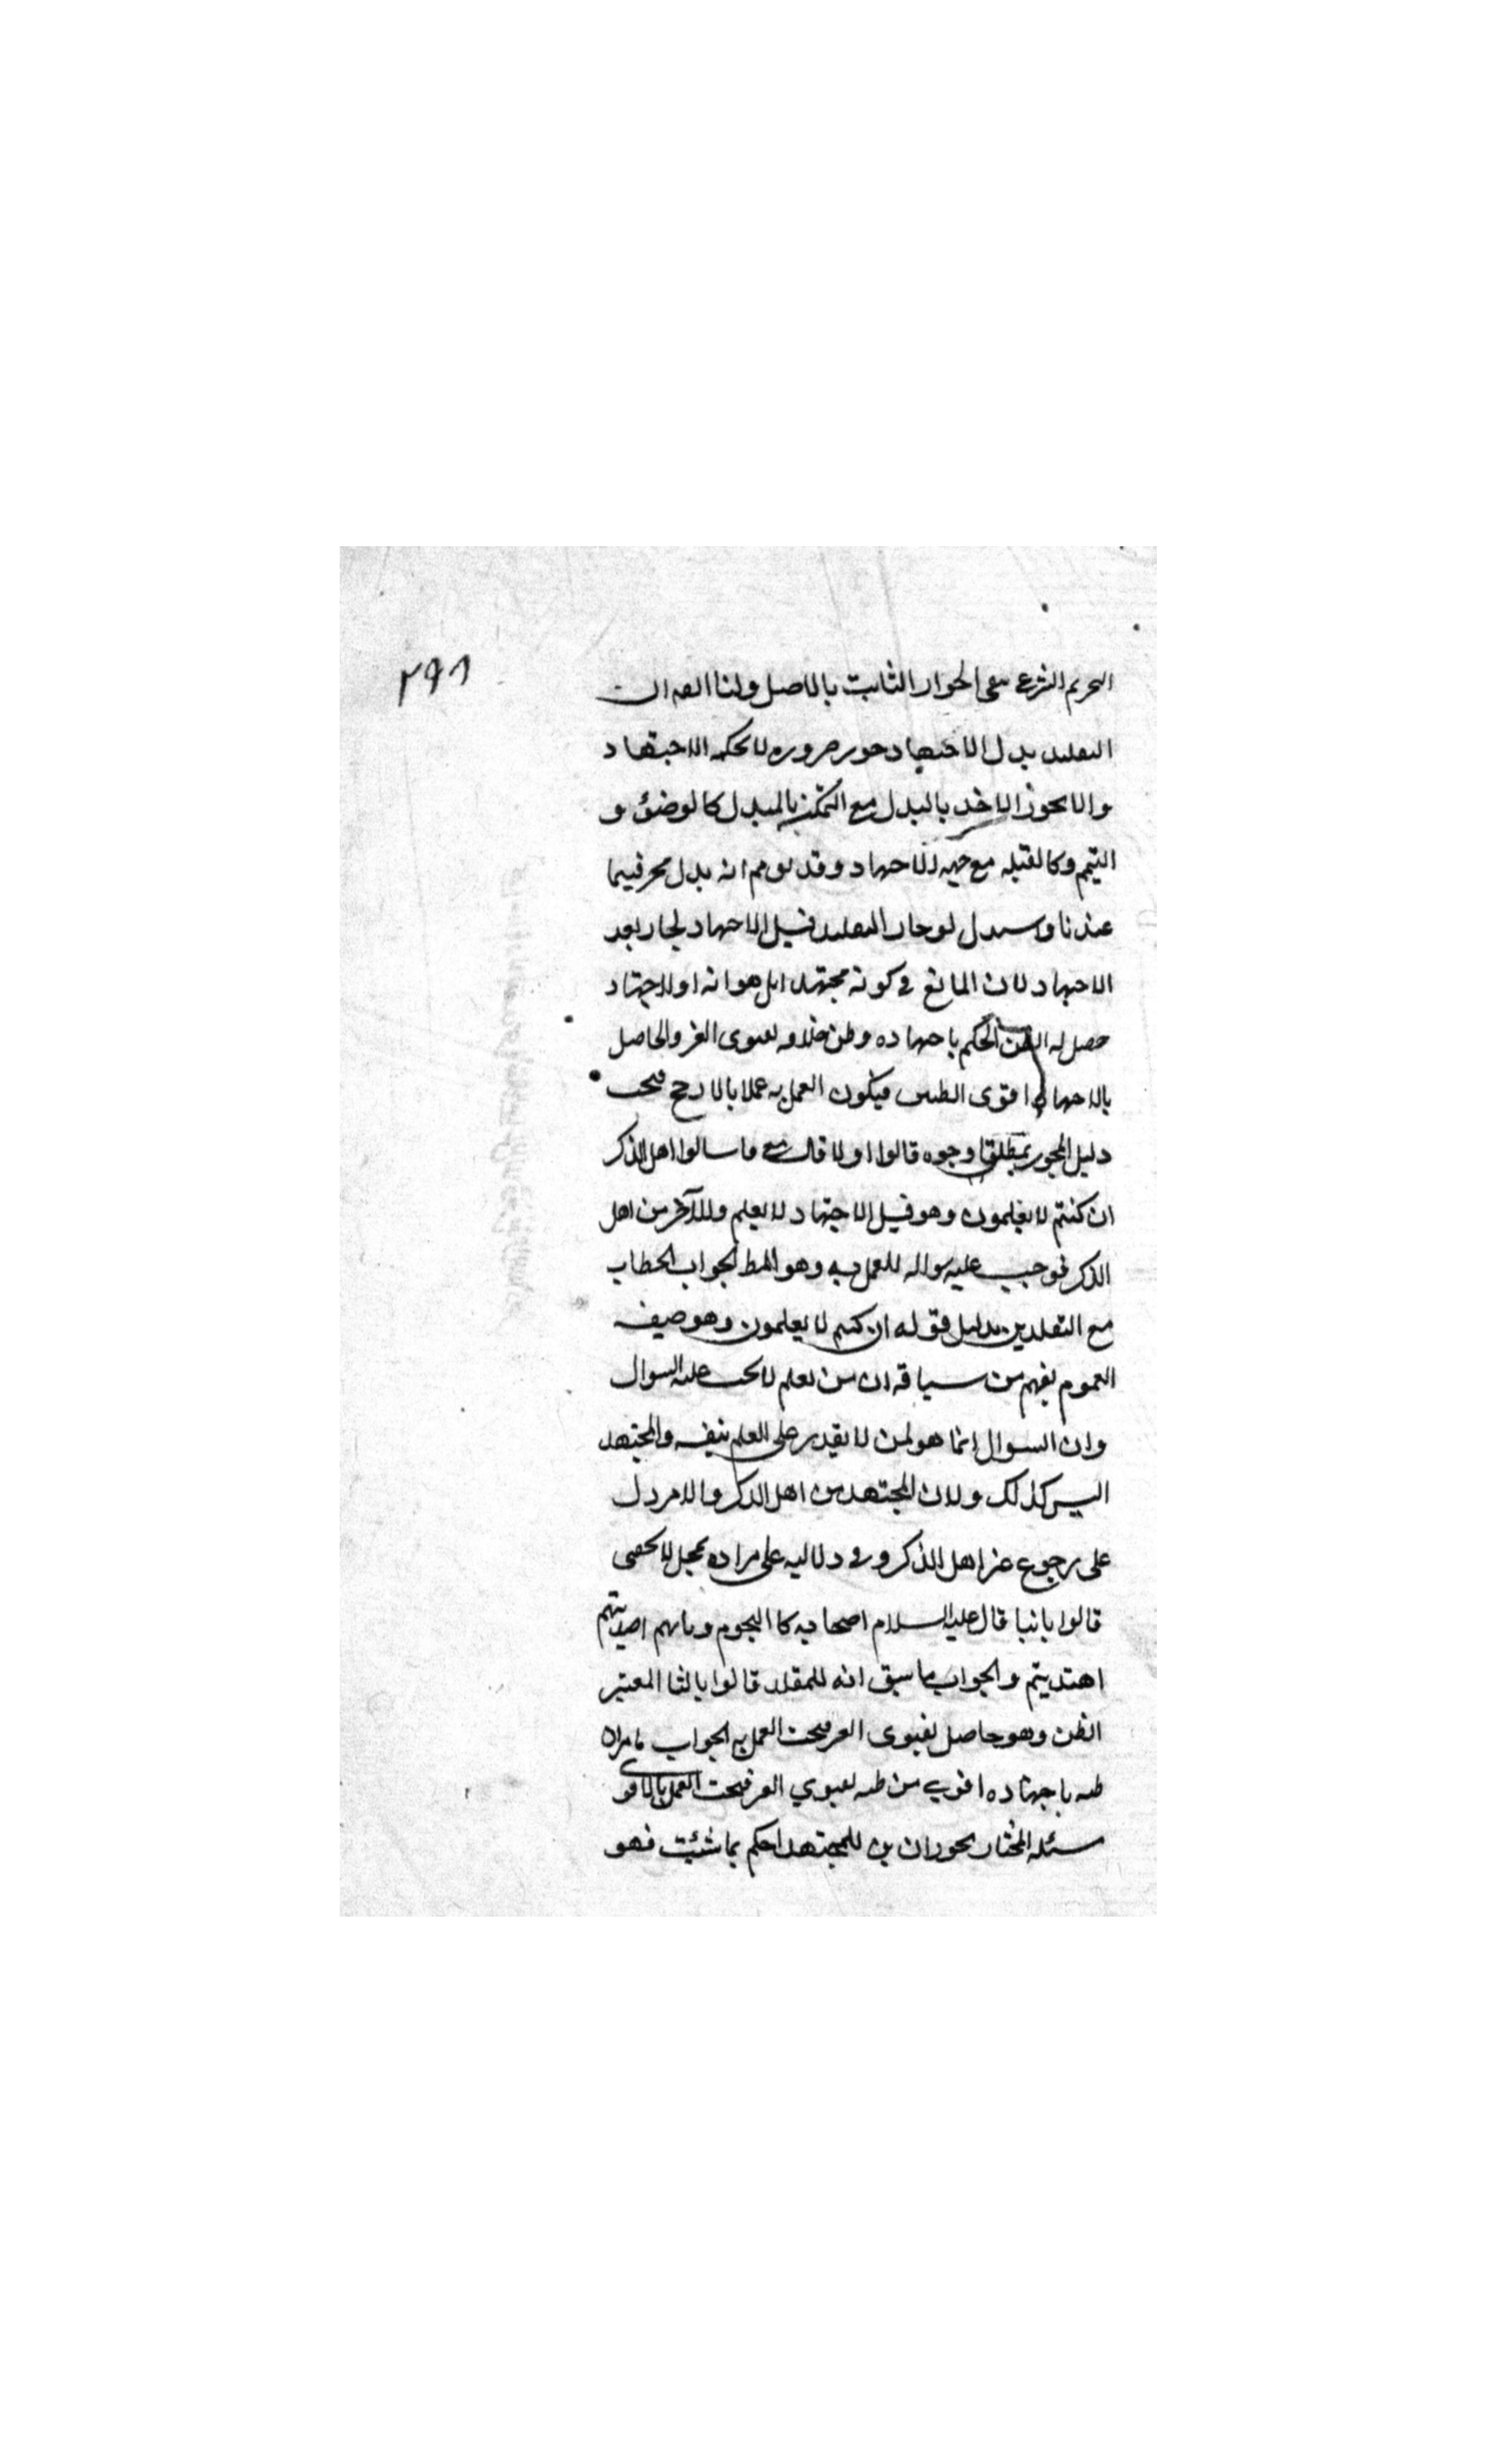 ٢٩٦
التحريم الشرعي ينفي الجواز الثابت بالاصل ولنا ايضا ان
التقليد بدل الاجتهاد جوز ضرورة لا يمكنه الاجتهاد
والا يجوز الاخذ بالبدل مع التمكن بالمبدل كالوضوء و
التيمم وكالقبلة مع جهة الاجتهاد وقد يوهم انه بدل مخير فيها
عندنا واستدل لو جاز التقليد قبل الاجتهاد لجاز بعد
الاجتهاد لان المانع في كونه مجتهدا بل هو انه اولا اجتهاد
حصل له الظن الحكم باجتهاده وظن خلافه بفتوى الغير والحاصل
بالاجتهاد اقوى الظنين فيكون العمل به عملا بالارجح فيجب
دليل المجوز مطلقا وجوه قالوا اولا قال تع فاسالوا اهل الذكر
ان كنتم لا تعلمون وهو قبل الاجتهاد لا يعلم وللآخر من اهل
الذكر فوجب عليه سواله للعمل به وهو المط الجواب الخطاب
مع التقلدين بدليل قوله ان كنتم لا تعلمون وهو صيغة
العموم يفهم من سياقه ان من يعلم لا يجب عليه السوال
وان السوال انما هو لمن لا يقدر على العلم بنفسه والمجتهد
اليس كذلك ولان المجتهد من اهل الذكر والامر دل
على رجوع غير اهل الذكر و في دلاليه على مراده لا يخفى
قالوا ثانيا قال عليه السلام اصحابي كا النجوم وبايهم اقتديتم
اهتديتم والجواب ما سبق انه للمقلد قالوا ثالثا المعتبر
الظن وهو حاصل بفتوى الغير فيجب العمل به الجواب مامر ان
ظنه باجتهاده اقوى من ظنه بفتوي الغير فيجب العمل بالاقوى
مسئلة المختار يجوز ان يق للمجتهد احكم بما شئت فهو